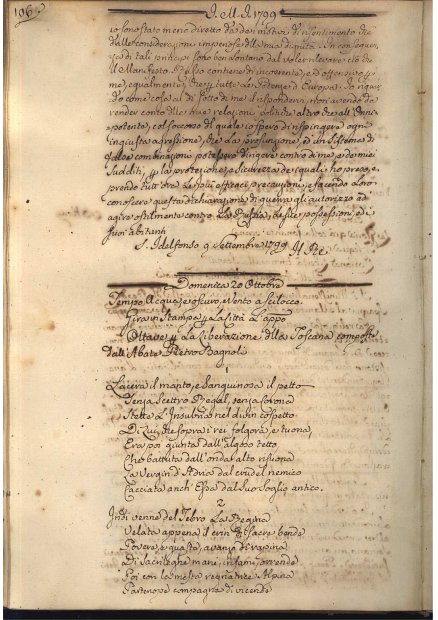 196.
J. M. J. 1799
io sono stato meno diretto da dei motivi di risentimento che
dalle considerazioni impense della mia dignità. In conseguen
za di tali principi sono ben lontano dal voler rilevare ciò che
Il Manifesto Russo contiene di incoerente, ed offensivo per
me, egualmente, che per tutte Le Potenze d'Europa. Io riguar
do come cosa al di sotto di me il rispondervi, non avendo da
render conto delle mie relazioni politiche altro che all'Onni
potente, col soccorso di quale io spero di rispingere ogni
Ingiusta agressione, che La presunzione, ed un sistema di
false combinazioni potessero dirigere contro di me, e de miei
Sudditi, per la protezione, e sicurezza de quali ho preso, e
prendo tutt'ora Le più efficaci precauzioni, e facendo Loro
conoscere questa dichiarazione di guerra gli autorizzo ad
agire ostilmente contro La Russia, desue possessioni, ed
suoi abitanti
S. Idelfonso 9 Settembre 1799 Il Re
Domenica 20 Ottobre
Tempo Acquazzio scuro, e Vento a Scilocco
Gira in Stampa per La Città L'appo
Ottave per La Liberazione della Toscana composte
dall'Abate Pietro Bagnoli
1
Lacera il manto, e Sanguinosa il petto
Senza Scettro Regal, senza Corona
Stette L'Insubria nel divin cospetto
Di Lui, che sopra i rei folgora, e tuona,
Era poi giunta dall'algoso tetto
Che battuta dall'onda alto risuona
La Vergin d'Adria dal crudel nemico
Cacciata anch'Essa dal Suo Soglio antico.
2
Indi venne del Tebro La Regina
Velata appena il crin di Sacre bende
Povera, e guasta, avanzo di rapina
Di Sacrileghe mani, infami, orrende
Poi con la mesta regnatrice Alpina
Partenope compagna di vicende